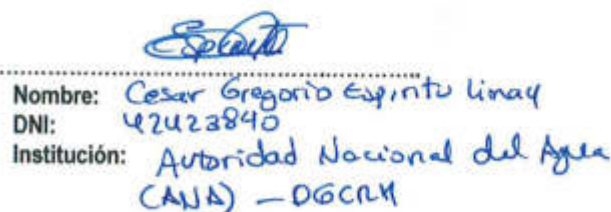 Nombre: Cesar Gregorio Espiritu Limay
DNI: 42423840
Institución: Autoridad Nacional del Agua
(ANA) – DGCRH